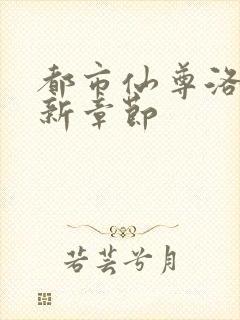 都市仙尊洛
新章节
若芸兮月